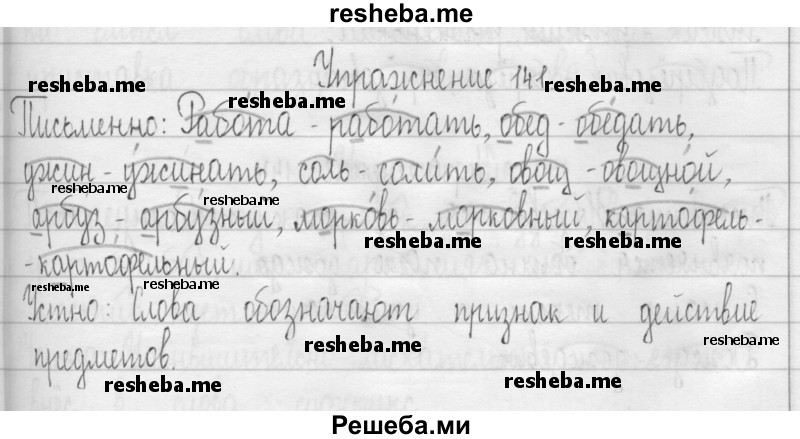 resheba.me
Упражнение 141
resheba.me resheba.me resheba.me
Письменно: Работа - работать, обед - обедать,
ужин - ужинать, соль - солить, овощ - овощной,
resheba.me resheba.me
арбуз - арбузный, морковь - морковный, картофель-
resheba.me resheba.me
-картофельный.
resheba.me resheba.me
Устно: Слова обозначают признак и действие
resheba.me resheba.me
предметов.
resheba.me resheba.me
Решеба.ми